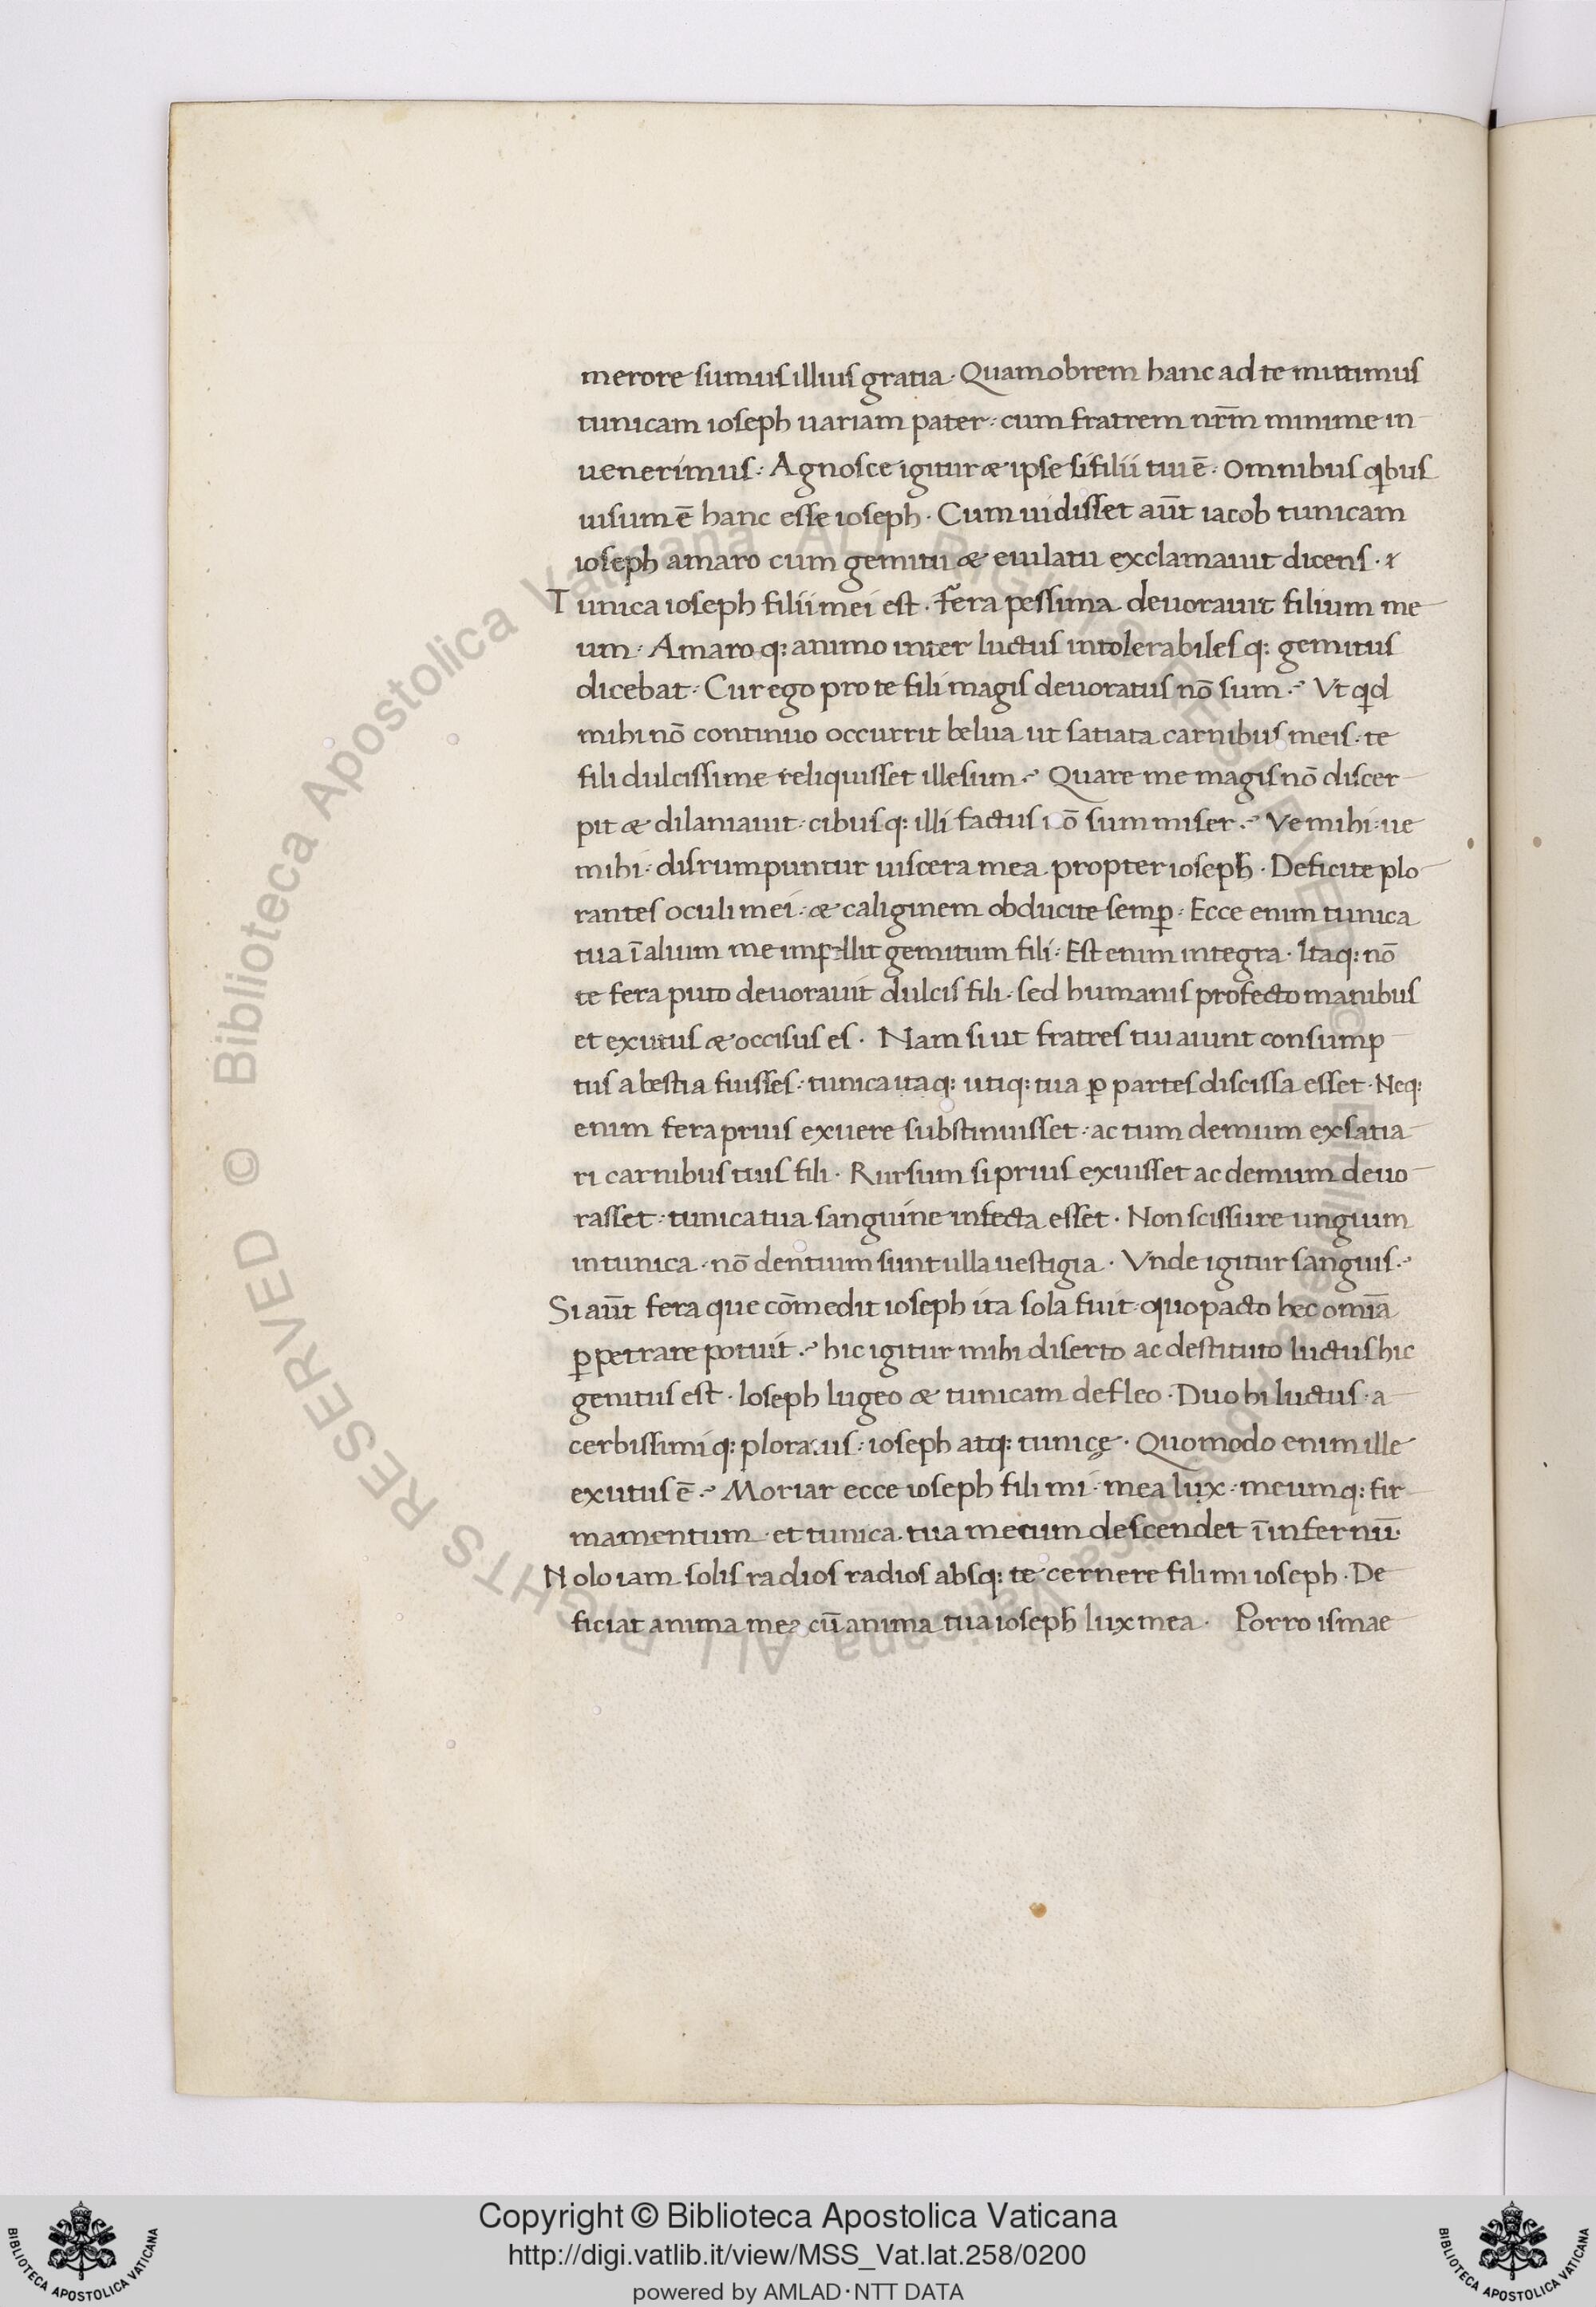 merore sumus illius gratia · Quamobrem hanc ad te mittimus
tunicam ioseph uariam pater : cum fratrem nr̄m minime in
uenerimus : Agnosce igitur & ipse si filii tui ē · Omnibus qibus
uisum ē hanc esse ioseph · Cum uidisset aūt iacob tunicam
ioseph amaro cum gemitu & eiulatu exclamauit dicens ·
Tunica ioseph filii mei est · Fera pessima deuorauit filium me
um : Amaro q: animo inter luctus intolerabiles q: gemitus
dicebat : Cur ego pro te fili magis deuoratus nō sum ? Vt qid
mihi nō continuo occurrit belua ut satiata carnibus meis : te
fili dulcissime reliquisset illesum ? Quare me magis nō discer
pit & dilaniauit : cibus q: illi factus nō sum miser ? Ve mihi : ue
mihi : disrumpuntur uiscera mea propter ioseph · Deficite plo
rantes oculi mei : & caliginem obducite semꝑ : Ecce enim tunica
tua ī alium me impellit gemitum fili : Est enim integra · Itaq: nō
te fera puto deuorauit dulcis fili : sed humanis profecto manibus
et exutus & occisus es · Nam si ut fratres tui aiunt consump
tus a bestia fuisses : tunica itaq: utiq: tua ꝑ partes discissa esset · Neq:
enim fera prius exuere substinuisset : ac tum demum exsatia
ri carnibus tuis fili · Rursum si prius exuisset ac demum deuo
rasset : tunica tua sanguine infecta esset · Non scissure ungium
in tunica · nō dentium sunt ulla uestigia · Vnde igitur sanguis ?
Si aūt fera que cōmedit ioseph ita sola fuit : quo pacto hec omīa
ꝑpetrare potuit ? hic igitur mihi diserto ac destituto luctus hic
genitus est · Ioseph lugeo & tunicam defleo · Duo hi luctus · a
cerbissimi q: ploratus : ioseph atq: tunicę · Quomodo enim ille
exutus ē ? Moriar ecce ioseph fili mi : mea lux : meumq: fir
mamentum · et tunica tua mecum descendet ī infernū·
Nolo iam solis radios radios absq: te cernere fili mi ioseph · De
ficiat anima mea cū anima tua ioseph lux mea · Porro ismae
© Biblioteca Apostolica Vaticana ALL RIGHTS RESERVED © Biblioteca Apostolica Vaticana ALL RIGHTS RESERVED
Copyright © Biblioteca Apostolica Vaticana
http://digi.vatlib.it/view/MSS_Vat.lat.258/0200
powered by AMLAD·NTT DATA
BIBLIOTECA APOSTOLICA VATICANA
BIBLIOTECA APOSTOLICA VATICANA